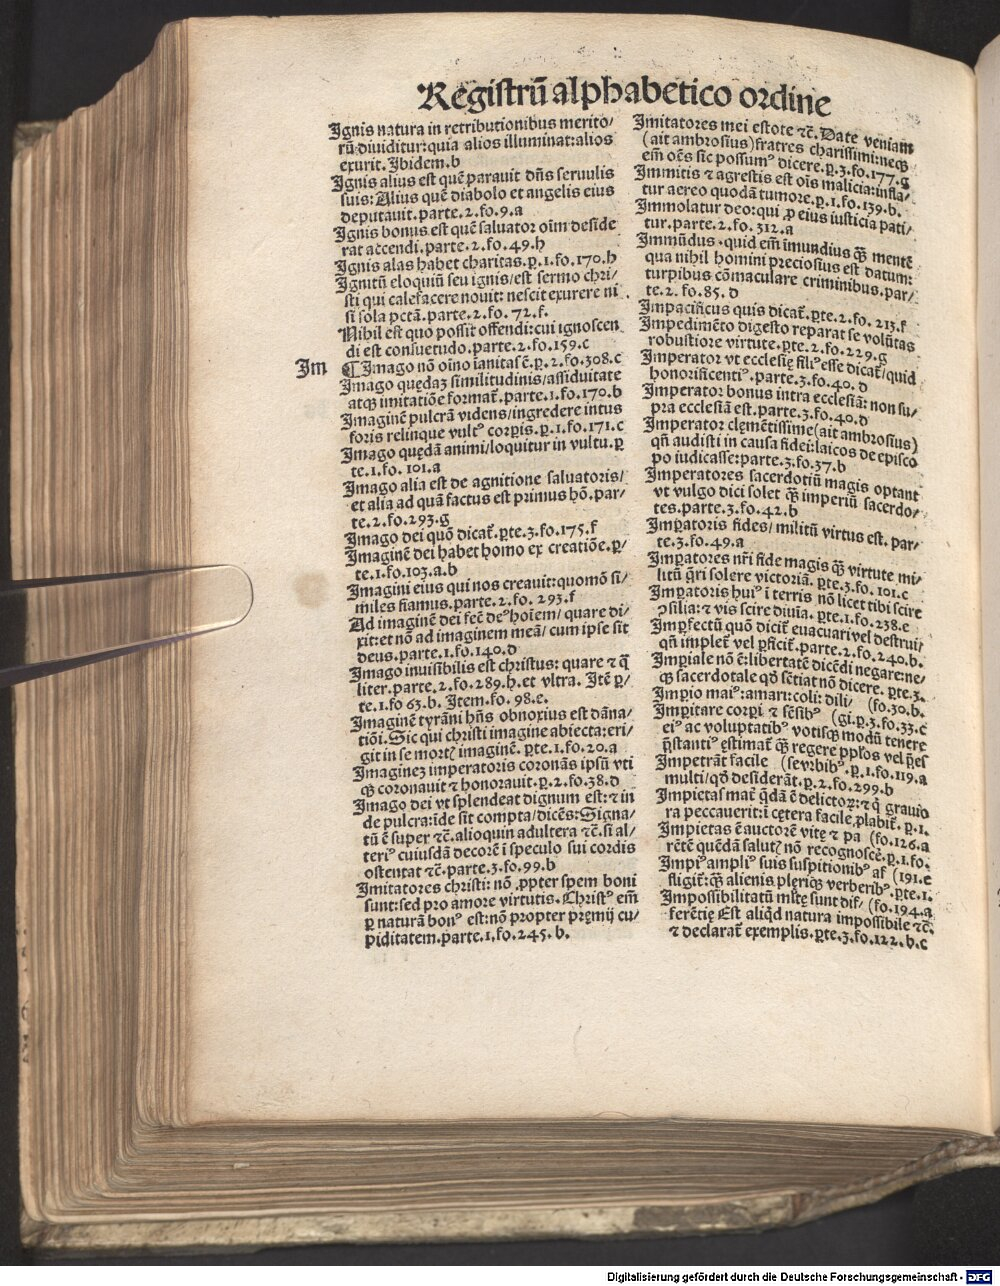 Registrū alphabetico ordine
Ignis natura in retributionibus merito/
rū diuiditur:quia alios illuminat:alios
exurit. Ibidem.b
Ignis alius est quē parauit dñs seruulis
suis: Alius quē diabolo et angelis eius
deputauit.parte.2.fo.9.a
Ignis bonus est quē saluator oīm deside
rat accendi.parte.2.fo.49.h
Ignis alas habet charitas.p.1.fo.170.h
Ignitū eloquiū seu ignis/est sermo chri/
sti qui calefacere nouit: nescit exurere ni
si sola pctā.parte.2.fo. 72.f.
Nihil est quo possit offendi:cui ignoscen
di est consuetudo.parte.2.fo.159.c
Im
¶Imago nō oīno īanitas ē.p.2.fo.308.c
Imago quedaz similitudinis/assiduitate
atqꝫ imitatiōe format̄.parte.1.fo.170.b
Imaginē pulcrā videns/ingredere intus
foris relinque vultꝰ corꝑis.p.1.fo.171.c
Imago quędā animi/loquitur in vultu.p
te.1.fo. 101.a
Imago alia est de agnitione saluatoris/
et alia ad quā factus est primus hō.par/
te.2.fo.293.g
Imago dei quō dicat̄.ꝑte.3.fo.175.f
Imaginē dei habet homo ex creatiōe.ꝑ/
te.1.fo.103.a.b
Imagini eius qui nos creauit:quomō si/
miles fiamus.parte.2.fo. 293.f
Ad imaginē dei fecē deꝰ hoīem/ quare di/
xit:et nō ad imaginem meā/ cum ipse sit
deus.parte.1.fo.140.d
Imago inuisibilis est christus: quare ⁊ q̄
liter.parte.2.fo.289.h.et vltra. Itē ꝑ/
te.1.fo 63.b. Item.fo. 98.e.
Imaginē tyrāni hñs obnoxius est dāna/
tiōi.Sic qui christi imagine abiecta:eri/
git in se mortꝭ imaginē. ꝑte.1.fo.20.a
Imaginez imperatoris coronās ipsū vti
qꝫ coronauit ⁊ honorauit.p.2.fo.38.d
Imago dei vt splendeat dignum est:⁊ in
de pulcra:īde sit compta/dicēs:Signa/
tū ē super ⁊c̄.alioquin adultera ⁊c̄.si al/
teriꝰ cuiusdā decorē ī speculo sui cordis
ostentat ⁊c̄.parte.3.fo.99.b
Imitatores christi: nō ꝓpter spem boni
sunt:sed pro amore virtutis.Christꝰ em̄
ꝑ naturā bonꝰ est:nō propter pręmij cu/
piditatem.parte.1.fo.245.b.
Imitatores mei estote ⁊c̄. Date veniam
(ait ambrosius)fratres charissimi:neqꝫ
em̄ oēs sic possumꝰ dicere.p.3.fo.177.g
Immitis ⁊ agrestis est oīs malicia:infla/
tur aereo quodā tumore.p.1.fo.139.b.
Immolatur deo:qui ꝓ eius iusticia pati/
tur.parte.2.fo. 312.a
Immūdus.quid em̄ īmundius qꝫ̄ mentē
qua nihil homini preciosius est datum:
turpibus cōmaculare criminibus.par/
te.2.fo.85.d
Impacificus quis dicat̄.ꝑte.2.fo. 213.f
Impedimēto digesto reparat se volūtas
robustiore virtute.ꝑte.2.fo.229.g
Imperator vt ecclesię filiꝰ esse dicat̄/quid
honorificentiꝰ.parte.3.fo.40.d
Imperator bonus intra ecclesiā: non su/
pra ecclesiā est.parte.3.fo.40.d
Imperator clęmētissime(ait ambrosius)
qñ audisti in causa fidei:laicos de episco
po iudicasse:parte.3.fo.37.b
Imperatores sacerdotiū magis optant
vt vulgo dici solet qꝫ̄ imperiū sacerdo/
tes.parte.3.fo.42.b
Imꝑatoris fides/ militū virtus est. par/
te.3.fo.49.a
Imꝑatores nr̄i fide magis qꝫ̄ virtute mi/
litū q̄ri solere victoriā. ꝑte.3.fo.101.c
Imꝑatoris huiꝰ ī terris nō licet tibi scire
ꝯsilia:⁊ vis scire diuīa. ꝑte.1.fo.238.e
Imꝑfectū quō dicit̄ euacuari vel destrui/
qñ implet̄ vel ꝑficit̄.parte.2.fo.240.b.
Imꝑiale nō ē:libertatē dicēdi negare:ne/
qꝫ sacerdotale qd̄ sētiat nō dicere. ꝑte.3.
Impio maiꝰ:amari:coli: dili/ (fo.30.b.
Imꝑitare corꝑi ⁊ sēsibꝰ (gi.p.3.fo.33.c
eiꝰ ac voluptatibꝰ votisqꝫ modū tenere
p̄stantiꝰ ęstimat̄ qꝫ̄ regere ppl̄os vel p̄es
Impetrāt facile (se vrbibꝰ.p.1.fo.119.a
multi/qd̄ desiderāt.p.2.fo.299.b
Impietas mat̄ q̄dā ē delictoꝝ:⁊ q̄ grauio
ra peccauerit:ī cętera facile ꝓlabit̄. p.1.
Impietas ē auctorē vitę ⁊ pa (fo.126.a
rētē quēdā salutꝭ nō recognoscē.p.1.fo.
Impiꝰ ampliꝰ suis suspitionibꝰ af (191.e
fligit̄:qꝫ̄ alienis plęriqꝫ verberibꝰ.ꝑte.1.
Impossibilitatū mltę sunt dif/ (fo.194.a
ferētię Est aliqd̄ natura impossibile ⁊c̄.
⁊ declarat̄ exemplis.ꝑte.3.fo.122.b.c
Digitalisierung gefördert durch die Deutsche Forschungsgemeinschaft - DFG